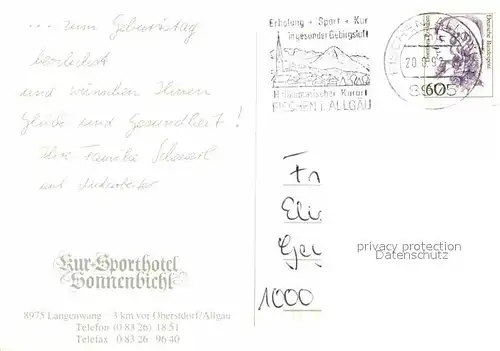 ... zum Geburtstag
herzlichst
und wünschen Ihnen
Glück und Gesundheit!
Ihre Familie
und Mitarbeiter
Kur-Sporthotel
Sonnenbichl
8975 Langenwang 3 km vor Oberstdorf/Allgäu
Telefon (0 83 26) 18 51
Telefax 0 83 26 96 40
Erholung + Sport + Kur
in gesunder Gebirgsluft
Heilklimatischer Kurort
FISCHEN i. ALLGÄU
FISCHEN i. ALLGÄU
20.8.92
8975
Deutsche Bundespost
60
Fr
Eli
Ge
1000
privacy protection
Datenschutz